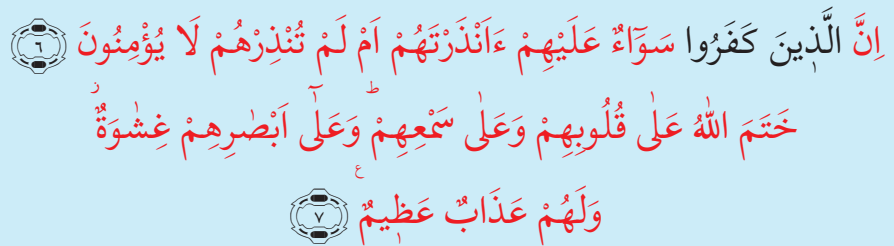 اِنَّ الَّذ۪ينَ كَفَرُوا سَوَٓاءٌ عَلَيْهِمْ ءَاَنْذَرْتَهُمْ اَمْ لَمْ تُنْذِرْهُمْ لَا يُؤْمِنُونَ ﴿٦﴾
خَتَمَ اللّٰهُ عَلٰى قُلُوبِهِمْ وَعَلٰى سَمْعِهِمْۜ وَعَلٰٓى اَبْصٰرِهِمْ غِشٰوَةٌۘ
وَلَهُمْ عَذَابٌ عَظ۪يمٌ ﴿٧﴾